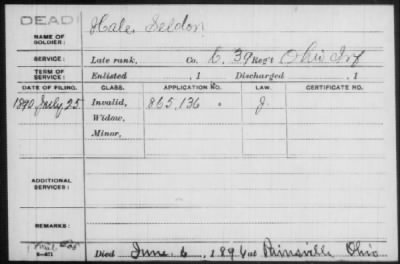 DEAD
Hale, Seldon
NAME OF SOLDIER:
SERVICE: Late rank, Co. C. 39 Reg't Ohio Inf
TERM OF SERVICE: Enlisted , 1 Discharged , 1
DATE OF FILING. CLASS. APPLICATION NO. LAW. CERTIFICATE NO.
1890, July, 25 Invalid, 865,136 J.
Widow,
Minor,
ADDITIONAL SERVICES:
REMARKS:
Died June 6, 1896 at Painsville Ohio